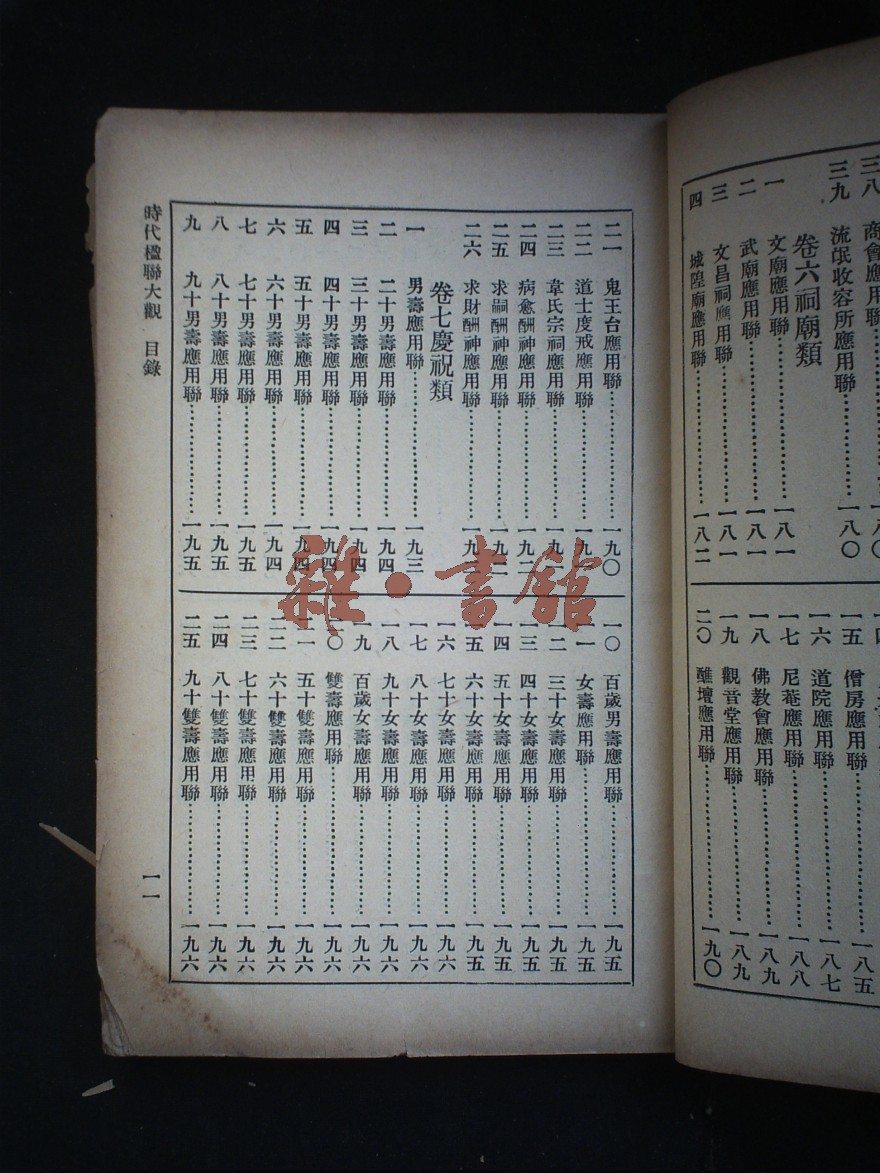 三八 商會應用聯…………一八〇
三九 流氓收容所應用聯…………一八〇
卷六祠廟類
一 文廟應用聯…………一八一
二 武廟應用聯…………一八一
三 文昌祠應用聯…………一八一
四 城隍廟應用聯…………一八二
一五 僧房應用聯…………一八五
一六 道院應用聯…………一八七
一七 尼菴應用聯…………一八八
一八 佛教會應用聯…………一八九
一九 觀音堂應用聯…………一八九
二〇 醮壇應用聯…………一九〇
二一 鬼王台應用聯…………一九〇
二二 道士度戒應用聯…………一九
二三 韋氏宗祠應用聯…………一九
二四 病愈酬神應用聯…………一九二
二五 求嗣酬神應用聯…………一九二
二六 求財酬神應用聯…………一九
卷七慶祝類
一 男壽應用聯…………一九三
二 二十男壽應用聯…………一九四
三 三十男壽應用聯…………一九四
四 四十男壽應用聯…………一九四
五 五十男壽應用聯…………一九四
六 六十男壽應用聯…………一九四
七 七十男壽應用聯…………一九五
八 八十男壽應用聯…………一九五
九 九十男壽應用聯…………一九五
一〇 百歲男壽應用聯…………一九五
一一 女壽應用聯…………一九五
一二 三十女壽應用聯…………一九五
一三 四十女壽應用聯…………一九五
一四 五十女壽應用聯…………一九五
一五 六十女壽應用聯…………一九五
一六 七十女壽應用聯…………一九六
一七 八十女壽應用聯…………一九六
一八 九十女壽應用聯…………一九六
一九 百歲女壽應用聯…………一九六
二〇 雙壽應用聯…………一九六
二一 五十雙壽應用聯…………一九六
二二 六十雙壽應用聯…………一九六
二三 七十雙壽應用聯…………一九六
二四 八十雙壽應用聯…………一九六
二五 九十雙壽應用聯…………一九六
時代楹聯大觀 目錄 一一
雜·書館